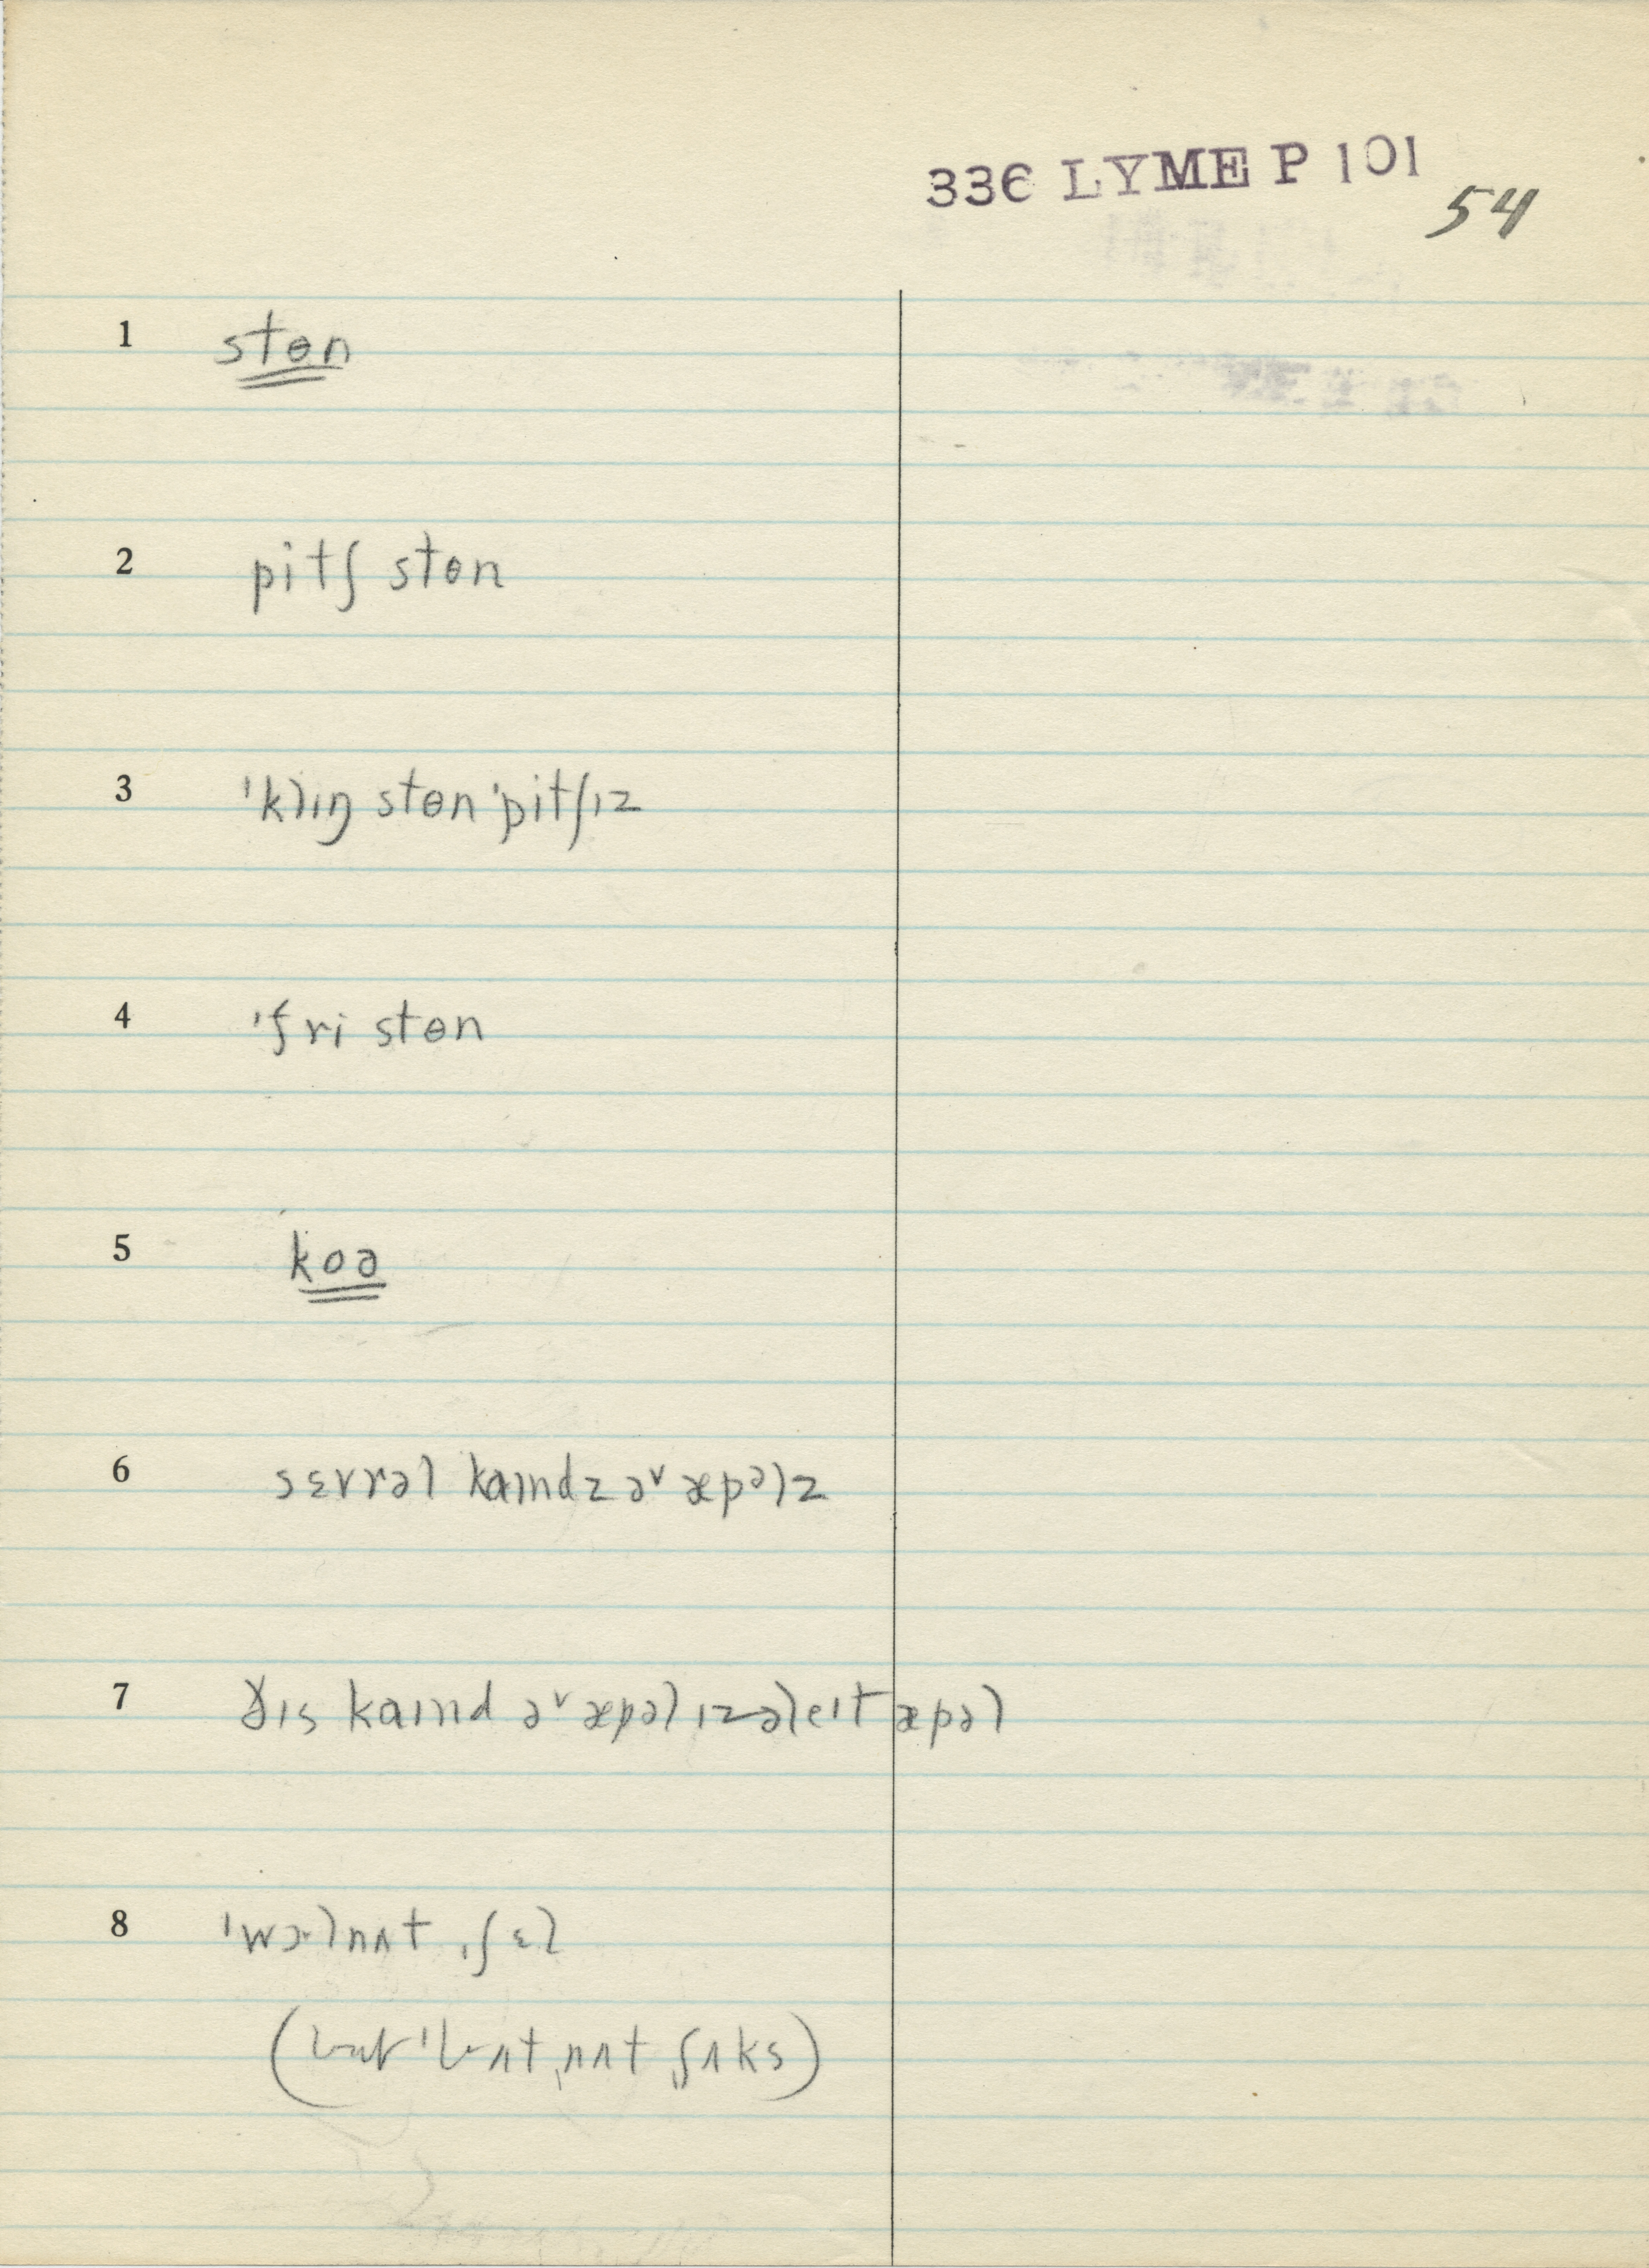 336 LYME P 101
54
1 stɵn
2 pitʃ stɵn
3 ˈklɪŋ stɵn ˈpitʃɪz
4 ˈfri stɵn
5 koə
6 sɛvrəl kaɪndz əv æpəlz
7 ðɪs kaɪnd əv æpəl ɪz ə leɪt æpəl
8 ˈwɔlnʌt ˌʃɛl
ˌnʌt ˌʃʌks)